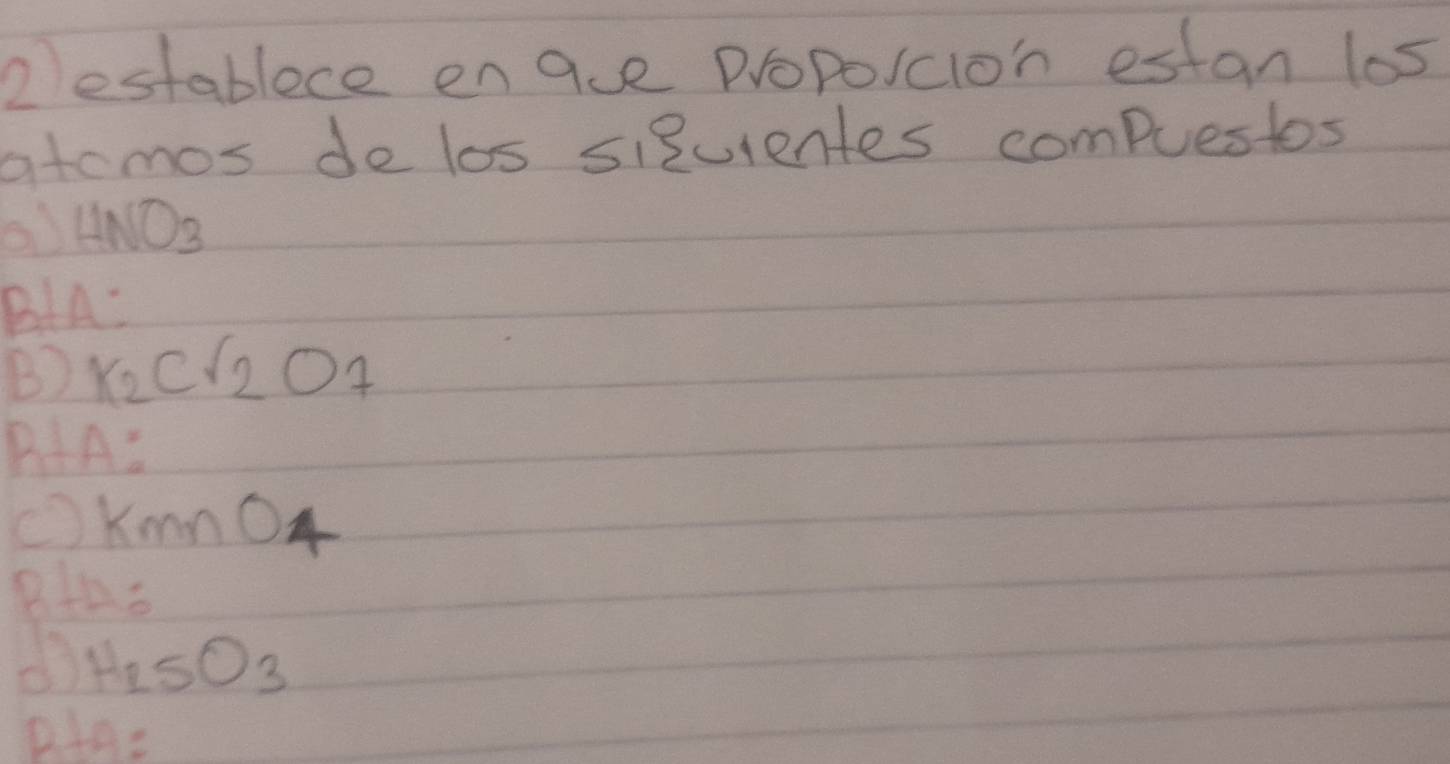 2) establece en que proporción estan los
atomos de los siguientes compuestos
a) HNO3
RtA:
B) K2Cr2O7
RtA:
C) KmnO4
RtA:
d) H2SO3
RtA: